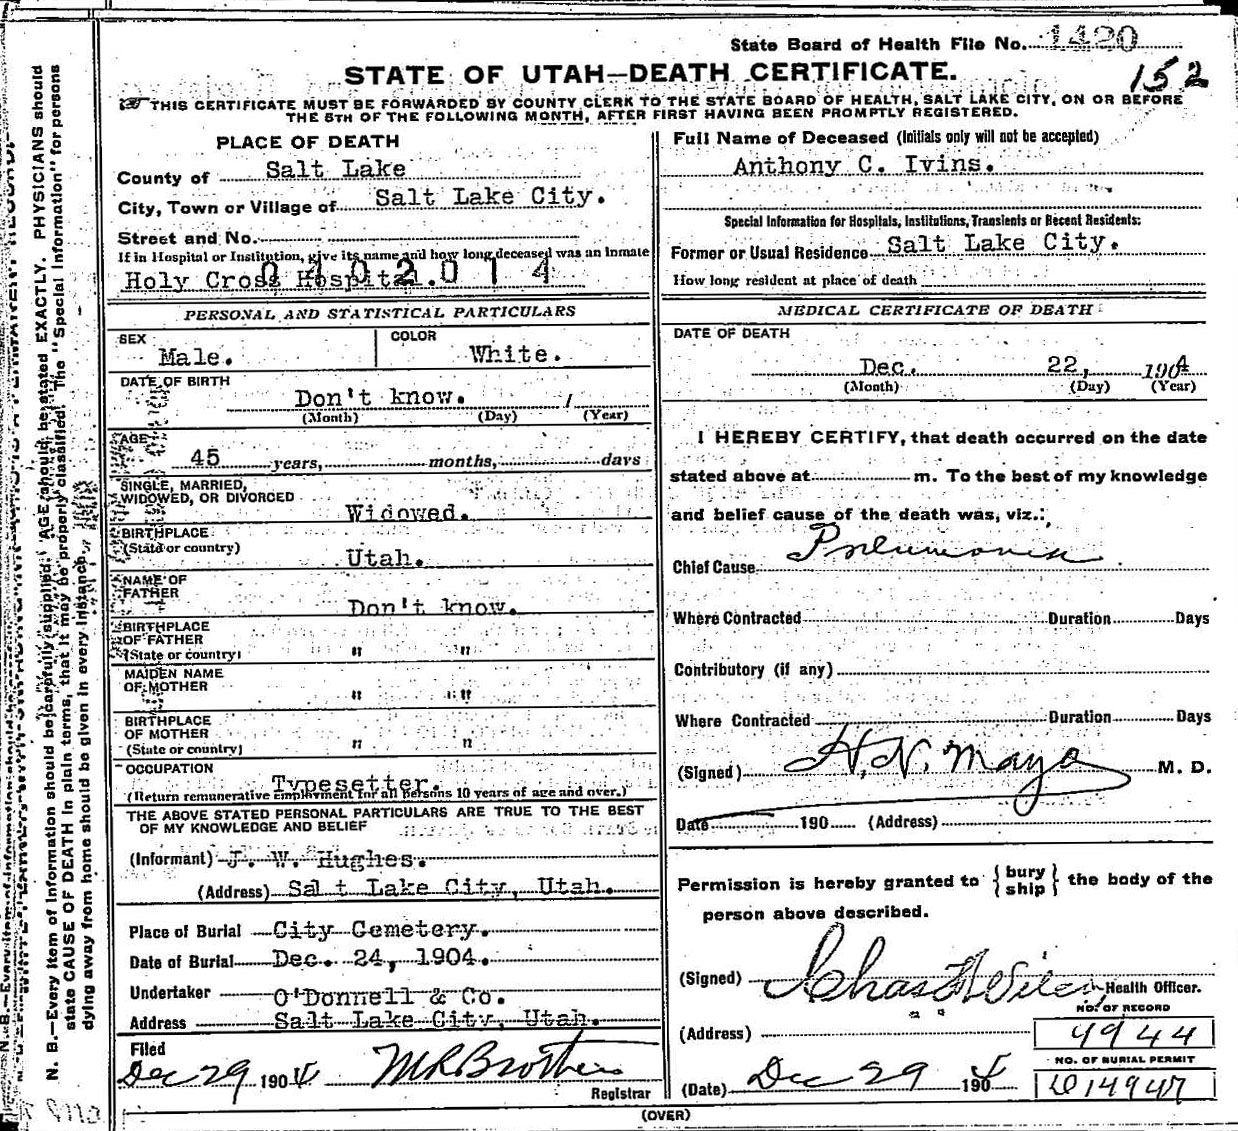 State Board of Health File No. 1420
152
STATE OF UTAH—DEATH CERTIFICATE.
THIS CERTIFICATE MUST BE FORWARDED BY COUNTY CLERK TO THE STATE BOARD OF HEALTH, SALT LAKE CITY, ON OR BEFORE
THE 5TH OF THE FOLLOWING MONTH, AFTER FIRST HAVING BEEN PROMPTLY REGISTERED.
PLACE OF DEATH
County of Salt Lake
City, Town or Village of Salt Lake City.
Street and No.
If in Hospital or Institution, give its name and how long deceased was an Inmate
Holy Cross Hospital.
0402014
PERSONAL AND STATISTICAL PARTICULARS
SEX Male.
COLOR White.
DATE OF BIRTH
Don't know.
(Month) (Day) (Year)
AGE
45 years, months, days
SINGLE, MARRIED,
WIDOWED, OR DIVORCED
Widowed.
BIRTHPLACE
(State or country)
Utah.
NAME OF
FATHER
Don't know.
BIRTHPLACE
OF FATHER
(State or country)
" "
MAIDEN NAME
OF MOTHER
" "
BIRTHPLACE
OF MOTHER
(State or country)
" "
OCCUPATION
Typesetter.
(Return remunerative Employment for all persons 10 years of age and over.)
THE ABOVE STATED PERSONAL PARTICULARS ARE TRUE TO THE BEST
OF MY KNOWLEDGE AND BELIEF
(Informant) J. W. Hughes.
(Address) Salt Lake City, Utah.
Place of Burial City Cemetery.
Date of Burial Dec. 24, 1904.
Undertaker O'Donnell & Co.
Address Salt Lake City, Utah.
Filed
Dec 29 1904 M R Brothers
Registrar
Full Name of Deceased (Initials only will not be accepted)
Anthony C. Ivins.
Special Information for Hospitals, Institutions, Transients or Recent Residents:
Former or Usual Residence Salt Lake City.
How long resident at place of death
MEDICAL CERTIFICATE OF DEATH
DATE OF DEATH
Dec. 22, 1904
(Month) (Day) (Year)
I HEREBY CERTIFY, that death occurred on the date
stated above at m. To the best of my knowledge
and belief cause of the death was, viz.:
Chief Cause Pneumonia
Where Contracted Duration Days
Contributory (if any)
Where Contracted Duration Days
(Signed) H. N. Mayo M. D.
Date 190 (Address)
Permission is hereby granted to {bury ship} the body of the
person above described.
(Signed) Chas Health Officer.
(Address)
NO. OF RECORD
4944
NO. OF BURIAL PERMIT
(Date) Dec 29 1904
14947
(OVER)
N. B.—Every item of information should be carefully supplied. AGE should be stated EXACTLY. PHYSICIANS should
state CAUSE OF DEATH in plain terms, that it may be properly classified. The "Special Information" for persons
dying away from home should be given in every instance.